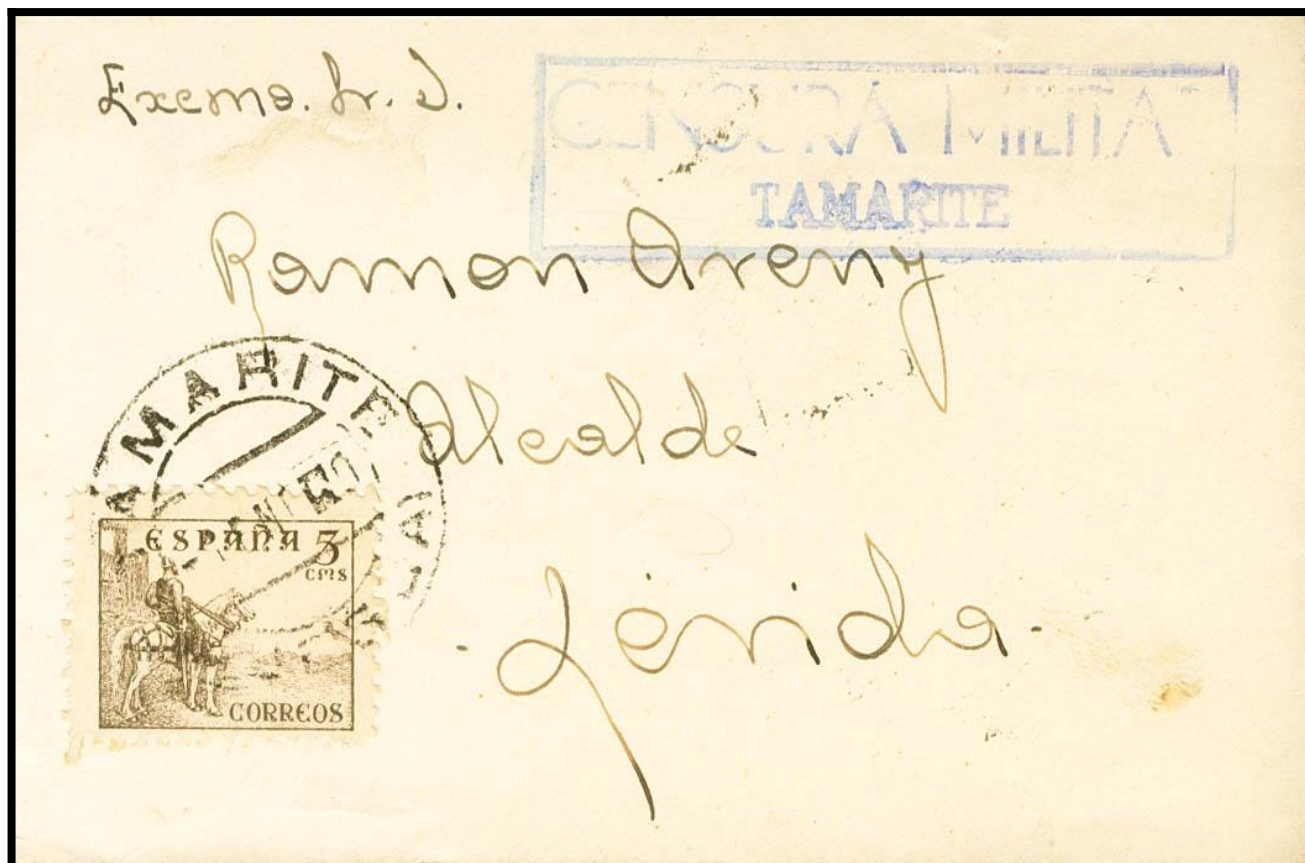 Excmo. Sr. D.
CENSURA MILITA
TAMARITE
Ramon Areny
Alcalde
Lérida
AMARITE
ESPAÑA 5
CMS
CORREOS